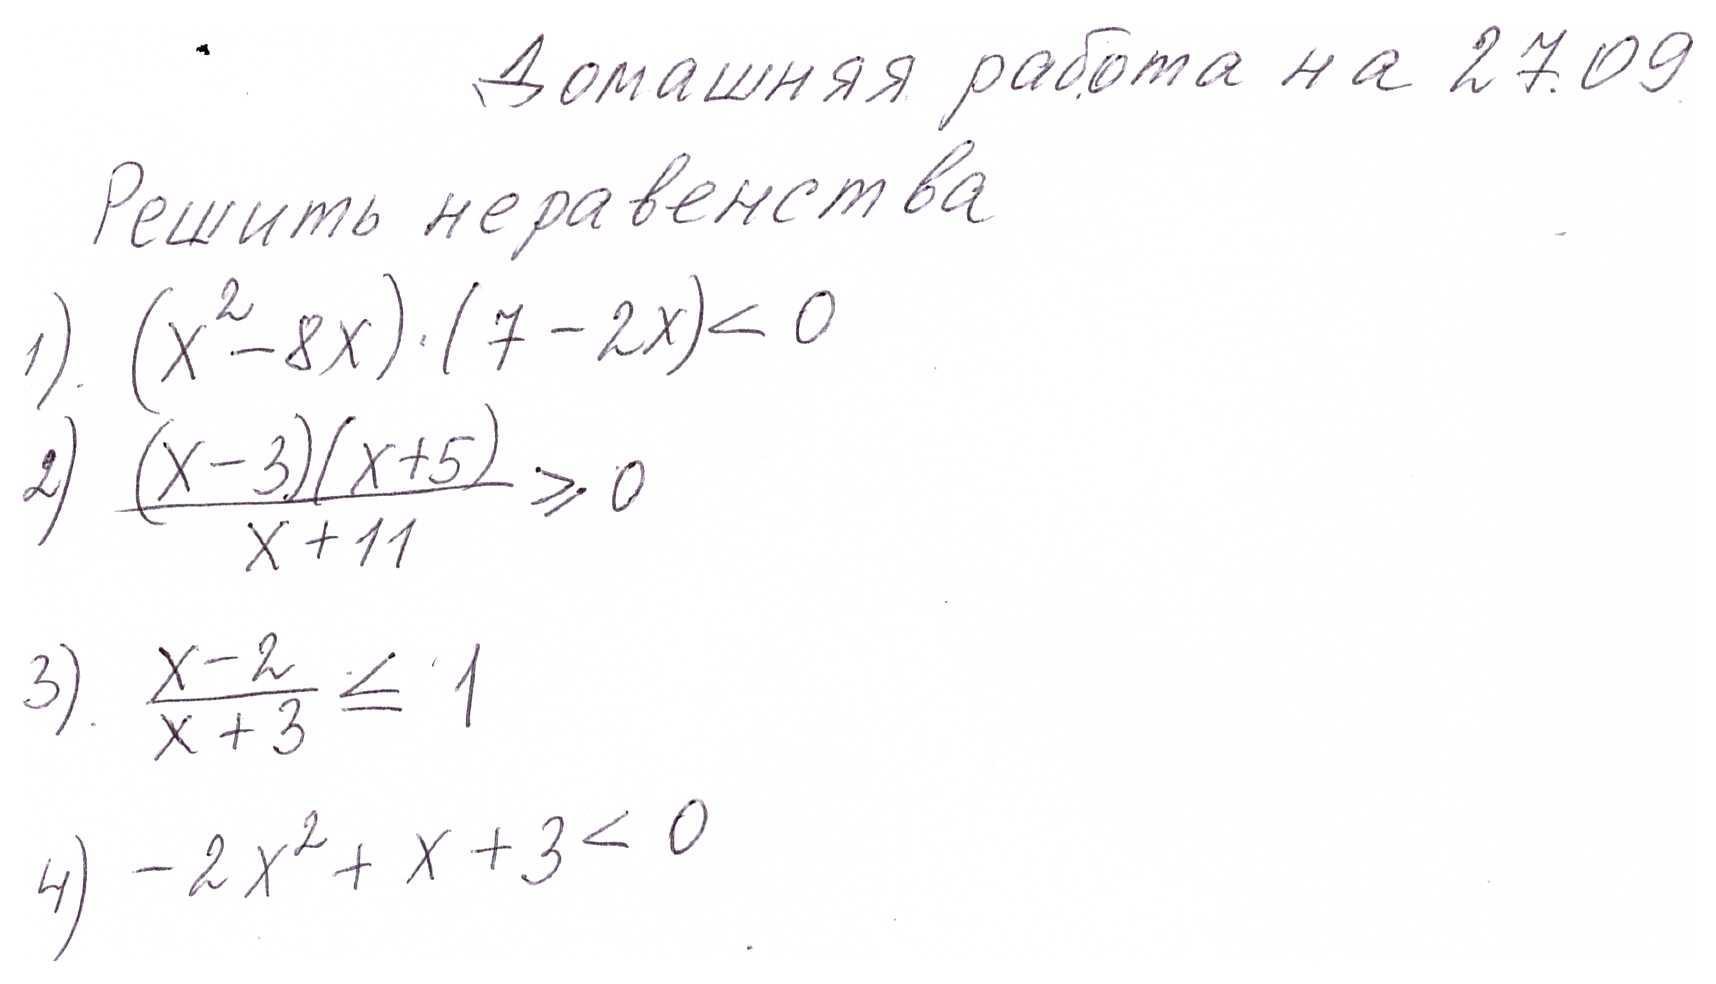 Домашняя работа на 27.09
Решить неравенства
1). (x²-8x)·(7-2x)<0
2) (x-3)(x+5)/x+11 ⩾ 0
3). x-2/x+3 ≤ 1
4) -2x²+x+3<0